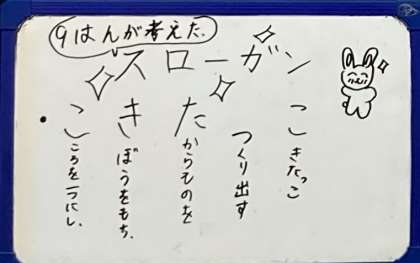 9はんが考えた.
スローガン
こころを一つにし、
きぼうをもち、
たからものを
つくり出す
こきたっこ